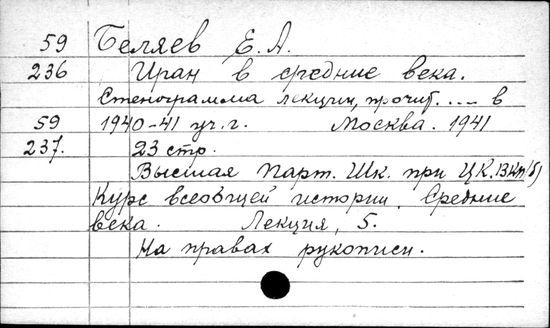 59 Беляев Е. А.
236 Иран в средние века.
Стенограмма лекции, прочит. .... в
59 1940-41 уч. г. Москва. 1941
237. 23 стр.
Высшая Парт. Шк. при ЦК. ВКП/б/
Курс всеобщей истории. Средние
века. Лекция, 5.
На правах рукописи.